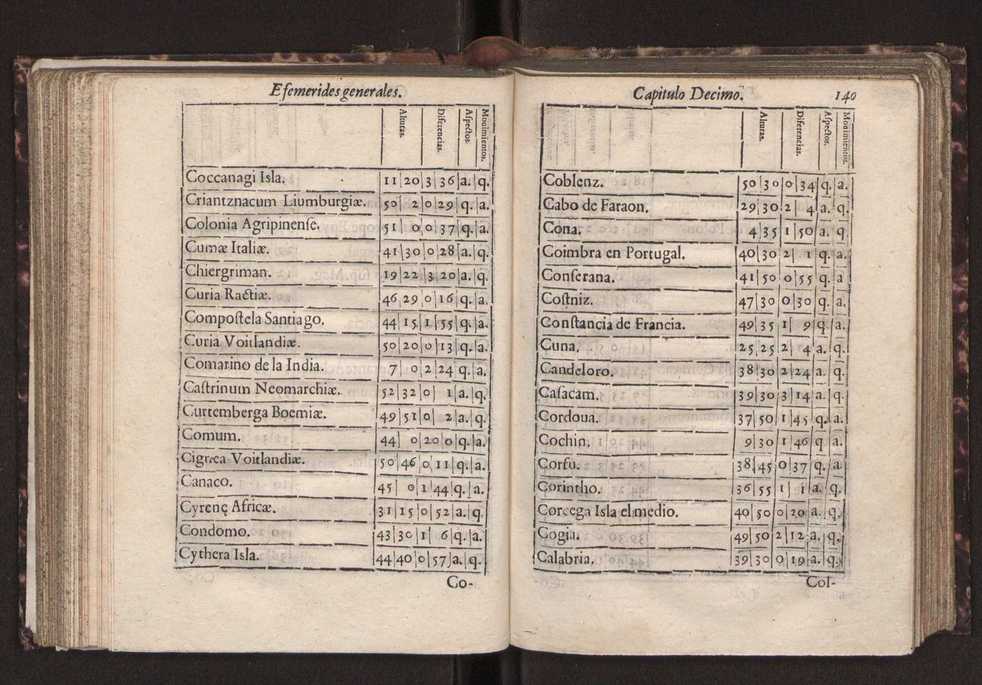 Eſemerides generales.
Alturas. Diferencias. Aſpectos. Mouimientos.
Coccanagi Isla. 11 20 3 36 a. q.
Criantznacum Liumburgiæ. 50 2 0 29 q. a.
Colonia Agripinenſe. 51 0 0 37 q. a.
Cumæ Italiæ. 41 30 0 28 a. q.
Chiergriman. 19 22 3 20 a. q.
Curia Ractiæ. 46 29 0 16 q. a.
Compoſtela Santiago. 44 15 1 55 q. a.
Curia Voitlandiæ. 50 20 0 13 q. a.
Comarino de la India. 7 0 2 24 q. a.
Caſtrinum Neomarchiæ. 52 32 0 1 a. q.
Curtemberga Boemiæ. 49 51 0 2 a. q.
Comum. 44 0 20 0 q. a.
Cigræca Voitlandiæ. 50 46 0 11 q. a.
Canaco. 45 0 1 44 q. a.
Cyrenę Africæ. 31 15 0 52 a. q.
Condomo. 43 30 1 6 q. a.
Cythera Isla. 44 40 0 57 a. q.
Co-
Capitulo Decimo. 140
Alturas. Diferencias. Aſpectos. Mouimientos.
Coblenz. 50 30 0 34 q. a.
Cabo de Faraon. 29 30 2 4 a. q.
Cona. 4 35 1 50 a. q.
Coimbra en Portugal. 40 30 2 1 q. a.
Conſerana. 41 50 0 55 q. a
Coſtniz. 47 30 0 30 q. a.
Conſtancia de Francia. 49 35 1 9 q. a.
Cuna. 25 25 2 4 a. q.
Candeloro. 38 30 2 24 a. q.
Caſacam. 39 30 3 14 a. q.
Cordoua. 37 50 1 45 q. a.
Cochin. 9 30 1 46 q a
Corfu. 38 45 0 37 q. a
Corintho. 36 55 1 1 a. q.
Corcega Isla el medio. 40 50 0 20 a. q.
Gogia. 49 50 2 12 a. q.
Calabria. 39 30 0 19 a. q.
Col-